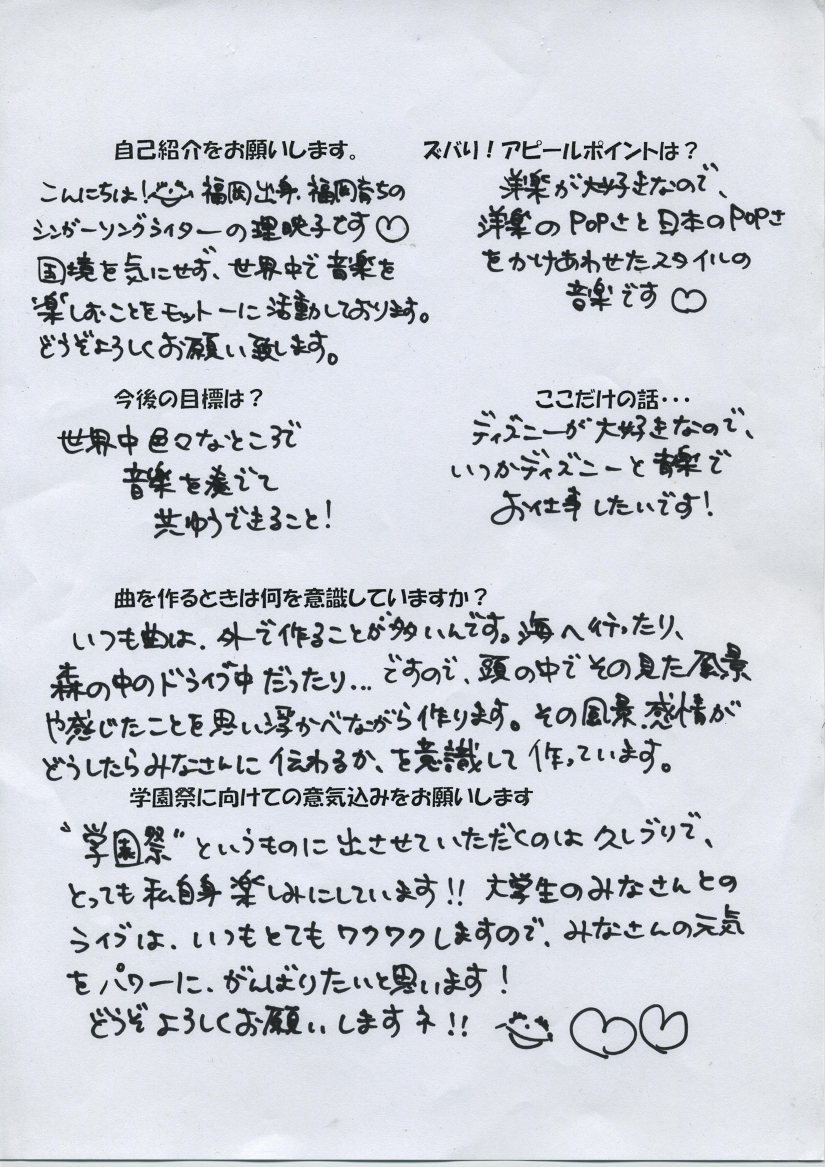 自己紹介をお願いします。
こんにちは! 福岡出身、福岡育ちの
シンガーソングライターの理映子です♡
国境を気にせず、世界中で音楽を
楽しむことをモットーに活動しております。
どうぞよろしくお願い致します。
ズバリ！アピールポイントは？
洋楽が大好きなので、
洋楽のPOPさと日本のPOPさ
をかけあわせたスタイルの
音楽です♡
今後の目標は？
世界中色々なところで
音楽を奏でて
共ゆうできること!
ここだけの話・・・
ディズニーが大好きなので、
いつかディズニーと音楽で
お仕事したいです!
曲を作るときは何を意識していますか？
いつも曲は、外で作ることが多いんです。海へ行ったり、
森の中のドライブ中だったり...ですので、頭の中でその見た風景
や感じたことを思い浮かべながら作ります。その風景、感情が
どうしたらみなさんに伝わるか、を意識して作っています。
学園祭に向けての意気込みをお願いします
“学園祭”というものに出させていただくのは久しぶりで、
とっても私自身楽しみにしています!! 大学生のみなさんとの
ライブは、いつもとてもワクワクしますので、みなさんの元気
をパワーに、がんばりたいと思います!
どうぞよろしくお願いしますネ!! ♡♡